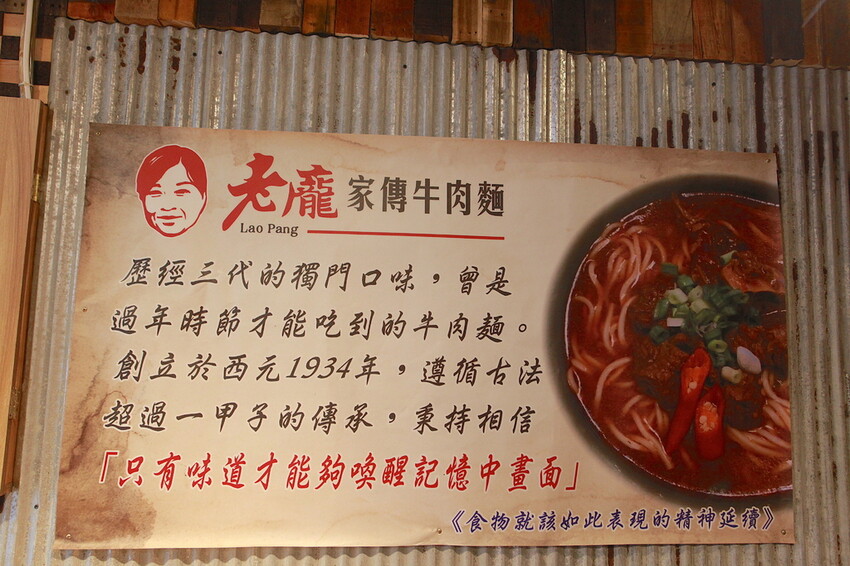 老龐 家傳牛肉麵
Lao Pang
歷經三代的獨門口味,曾是
過年時節才能吃到的牛肉麵。
創立於西元1934年,遵循古法
超過一甲子的傳承,秉持相信
「只有味道才能夠喚醒記憶中畫面」
《食物就該如此表現的精神延續》